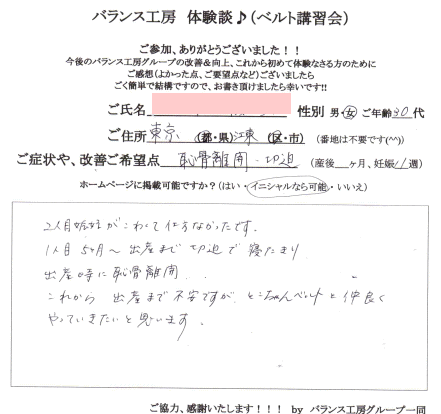 バランス工房 体験談♪(ベルト講習会)
ご参加、ありがとうございました！！
今後のバランス工房グループの改善&向上、これから初めて体験なさる方のために
ご感想(よかった点、ご要望点など)ございましたら
ごく簡単で結構ですので、お書き頂けましたら幸いです!!
ご氏名 性別 男・女 ご年齢30代
ご住所 東京 (都・県) 江東 区・市) (番地は不要です(^^))
ご症状や、改善ご希望点 恥骨離開・切迫 (産後 ヶ月、妊娠 週)
ホームページに掲載可能ですか？(はい・イニシャルなら可能・いいえ)
2人目妊娠がこわくて仕方なかったです。
1人目 5ヶ月〜出産まで 切迫で寝たきり
出産時に恥骨離開...
これから 出産まで不安ですが、とこちゃんベルトと仲良く
やっていきたいと思います。
ご協力、感謝いたします！！！ by バランス工房グループ一同